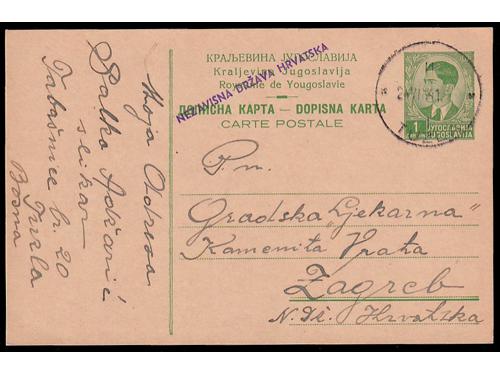 КРАЉЕВИНА ЈУГОСЛАВИЈА
Kraljevina Jugoslavija
Royaume de Yougoslavie
NEZAVISNA DRŽAVA HRVATSKA
ДОПИСНА КАРТА — DOPISNA KARTA
CARTE POSTALE
1
ЈУГОСЛАВИЈА
JUGOSLAVIJA
Moja Adresa
slikar
br. 20
Tuzla
Bosna
P.n.
Gradska "Ljekarna"
Kamenita Vrata
Zagreb
N. D. Hrvatska